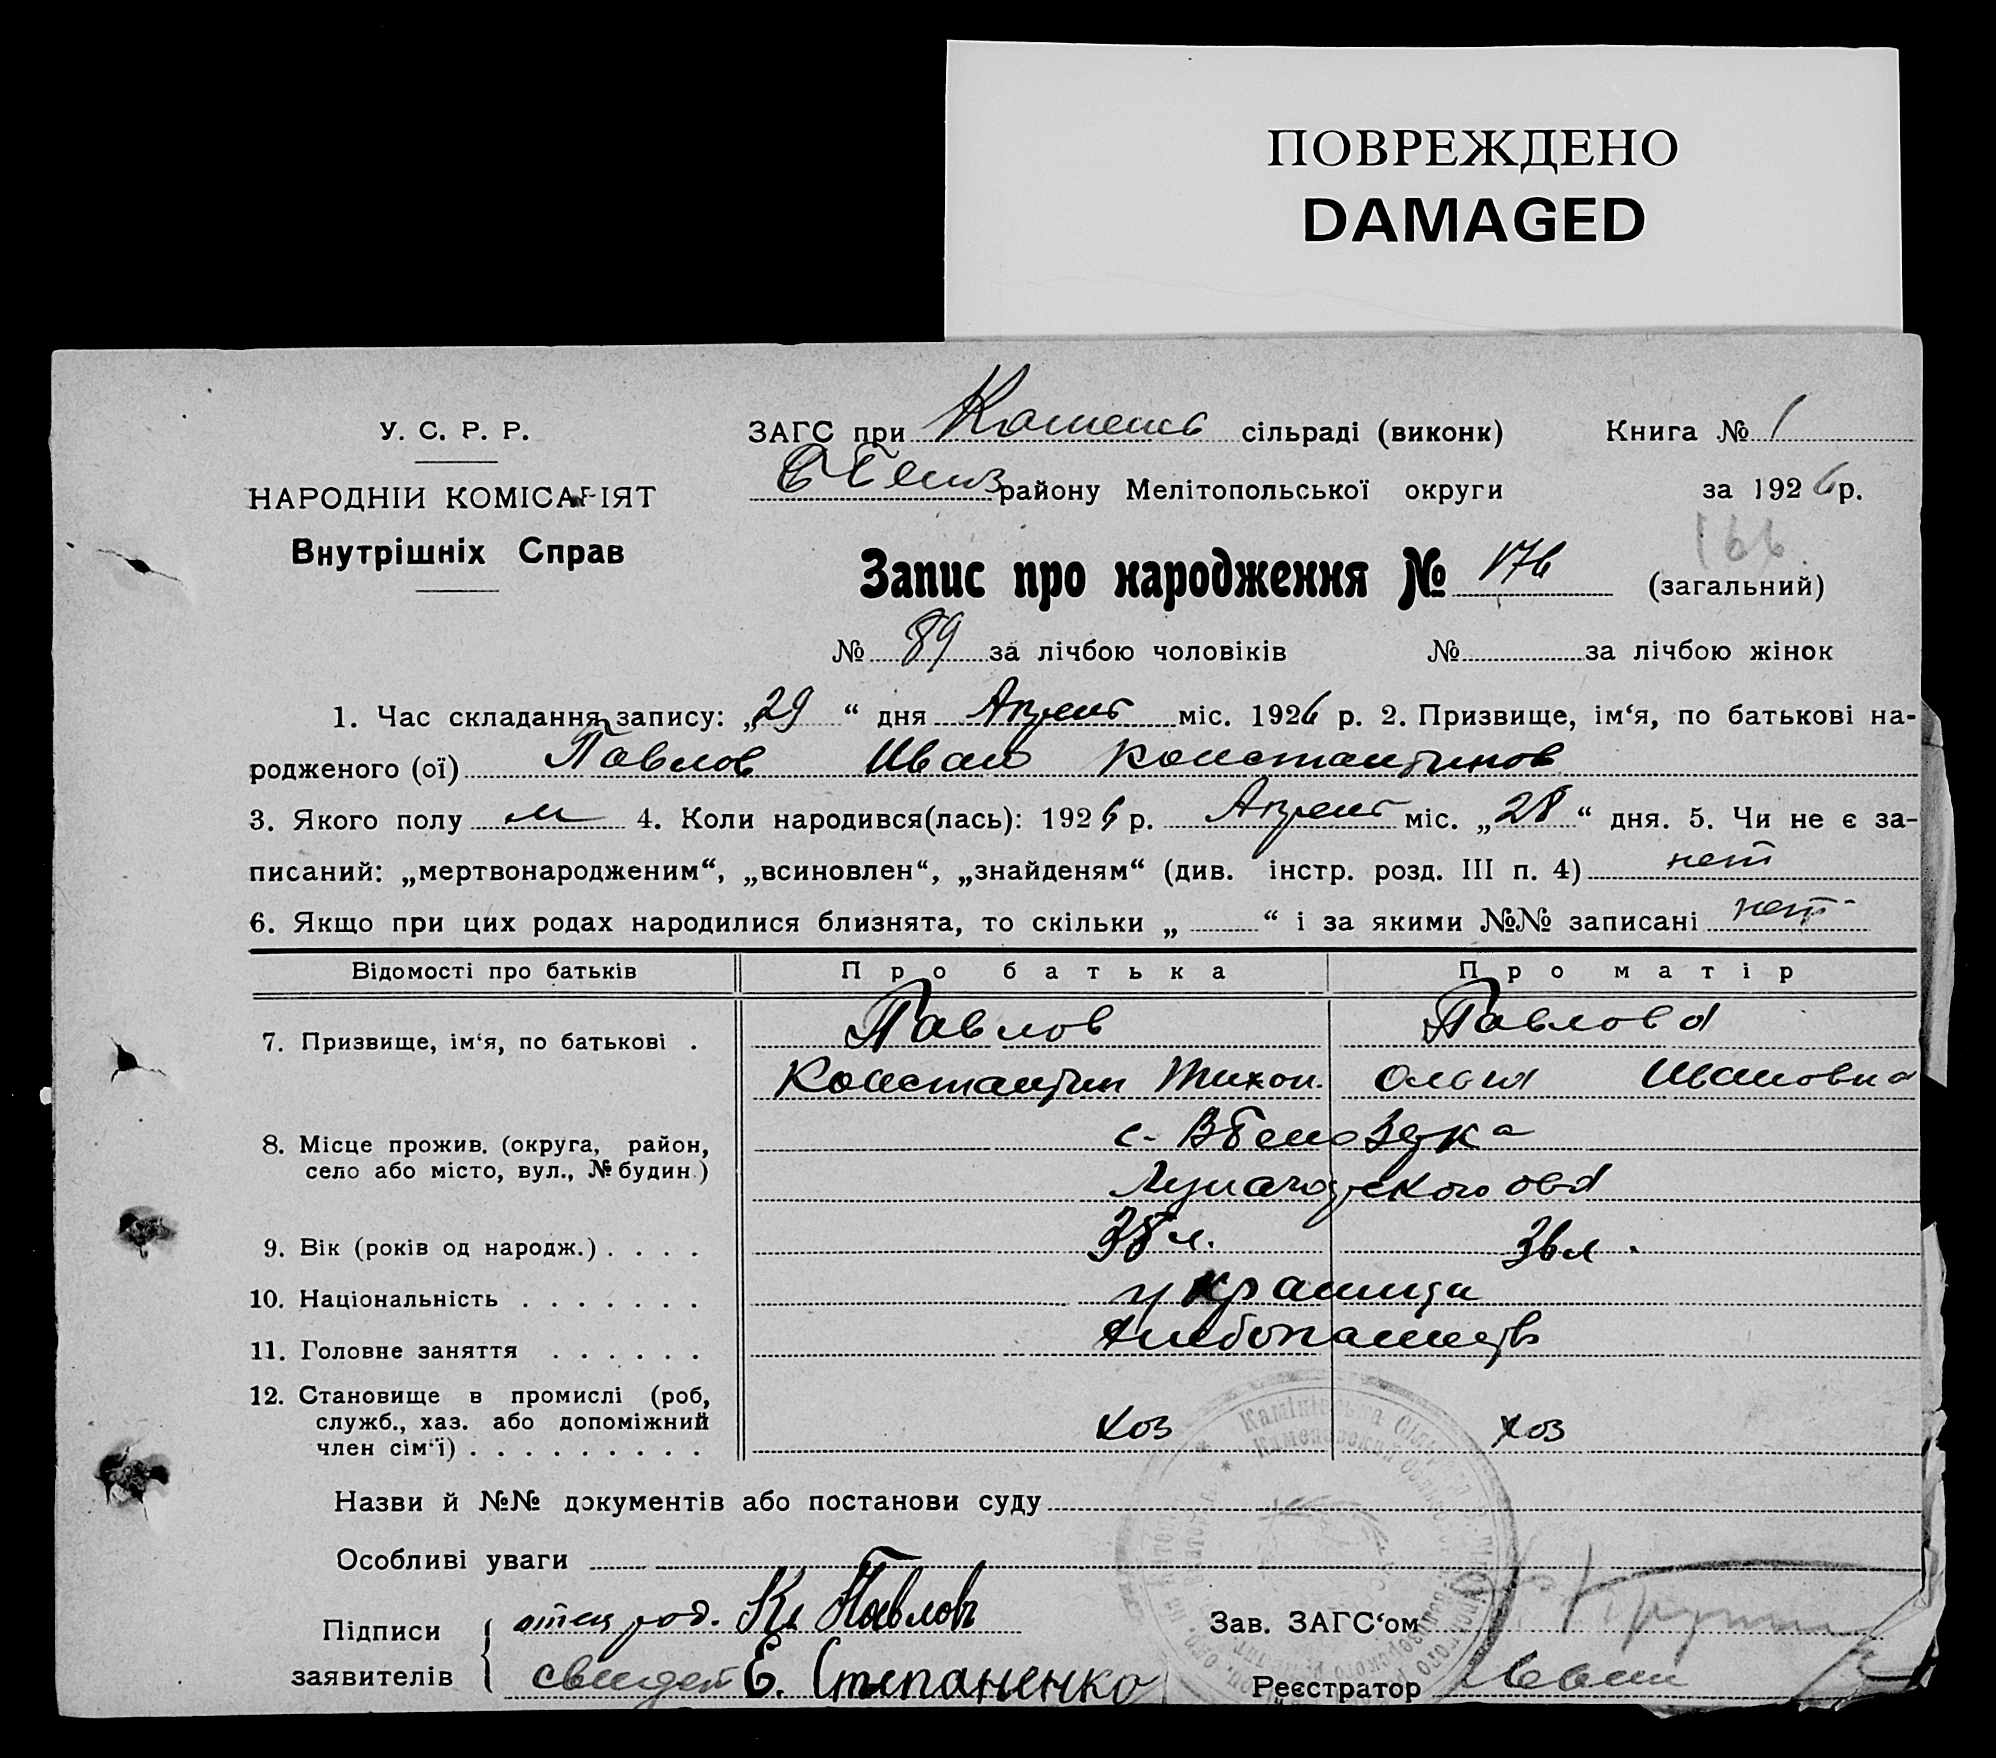 ПОВРЕЖДЕНО
DAMAGED
У. С. Р. Р.
ЗАГС при Камень сільраді (виконк) Книга № 1
НАРОДНІЙ КОМІСАРІЯТ
району Мелітопольської округи за 1926 р.
166
Внутрішніх Справ
Запис про народження № 176 (загальний)
№ 89 за лічбою чоловіків № за лічбою жінок
1. Час складання запису: „29“ дня Апрель міс. 1926 р. 2. Призвище, ім‘я, по батькові на-
родженого (ої) Павлов Иван Константинов
3. Якого полу м 4. Коли народився(лась): 1926 р. Апрель міс. „28“ дня. 5. Чи не є за-
писаний: „мертвонародженим“, „всиновлен“, „знайденям“ (див. інстр. розд. III п. 4) нет
6. Якщо при цих родах народилися близнята, то скільки „ “ і за якими №№ записані нет
Відомості про батьків Про батька Про матір
7. Призвище, ім‘я, по батькові . Павлов Павлова
Константин Тихон. Ольга Ивановна
8. Місце прожив. (округа, район, село або місто, вул., № будин.) с.
9. Вік (років од народж.) . . . . 38 л. 36 л.
10. Національність . . . . . . . украинци
11. Головне заняття . . . . . . хлебопашеств
12. Становище в промислі (роб, служб., хаз. або допоміжний член сім‘ї) . . . . . . . . . хоз хоз
Назви й №№ документів або постанови суду
Особливі уваги
Підписи заявителів { отец род. Павлов
свидет Е. Степаненко
Зав. ЗАГС‘ом
Реєстратор